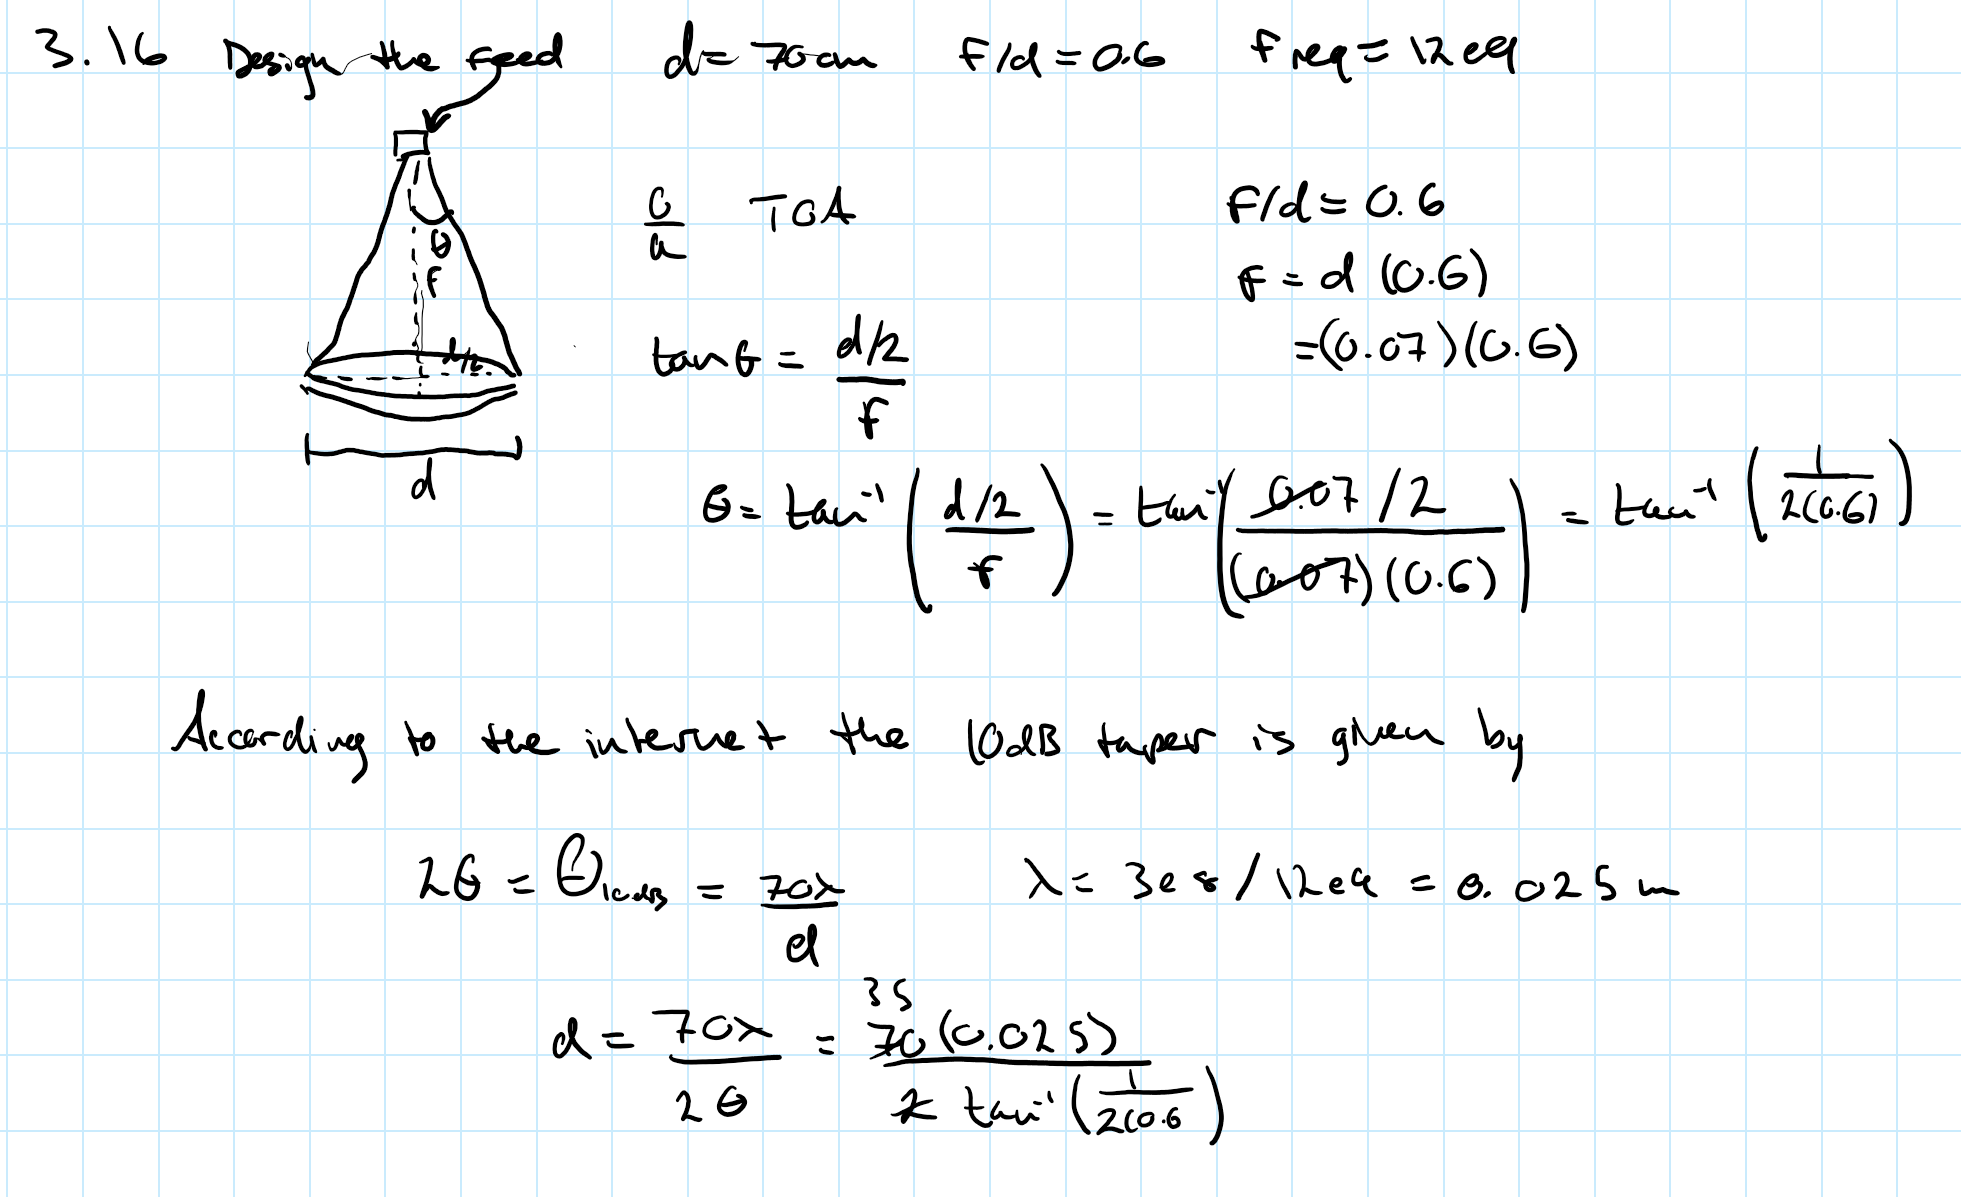 3.16 Design the Feed d= 70cm F/d = 0.6 Freq = 12e9
θ
F
d/2
d
o/a TOA
F/d = 0.6
F = d (0.6)
=(0.07)(0.6)
tanθ = (d/2)/F
θ = tan⁻¹((d/2)/F) = tan⁻¹((0.07/2)/((0.07)(0.6))) = tan⁻¹(1/(2(0.6)))
According to the internet the 10dB taper is given by
2θ = θ10dB = 70λ/d λ = 3e8/12e9 = 0.025m
35
d = 70λ/2θ = 70(0.025)/(2 tan⁻¹(1/(2(0.6)))